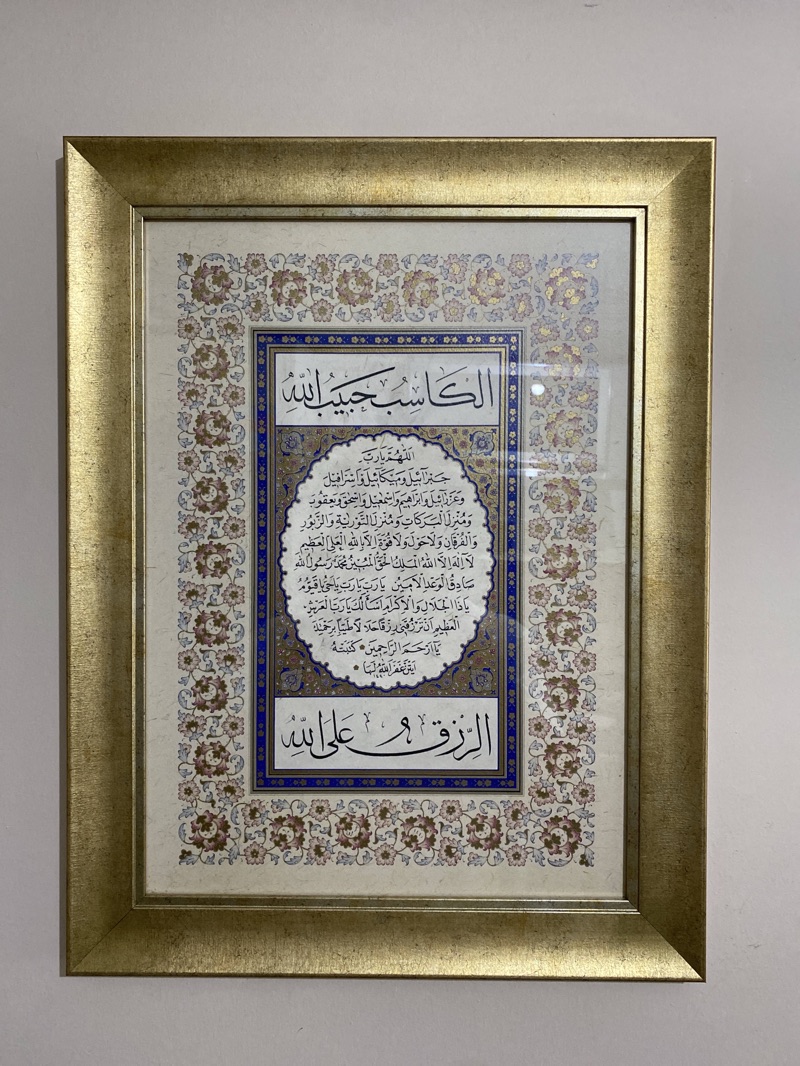 الكَاسِبُ حَبِيبُ اللّٰهِ
اَللّٰهُمَّ يَارَبَّ
جَبْرَآئيلَ وَمِيكَائيلَ وَاِسْرَافيلَ
وَعَزْرَائيلَ وَابْرَاهِيمَ وَاِسْمٰعيلَ وَاِسْحٰقَ وَيَعْقُوبَ
وَمُنْزِلَ الْبَرَكَاتِ وَمُنْزِلَ التَّوْرٰيةِ وَالزَّبُورِ
وَالْفُرْقَانِ وَلَاحَوْلَ وَلَا قُوَّةَ اِلَّا بِاللّٰهِ الْعَلِىِّ الْعَظِيمِ
لَا اِلٰهَ اِلَّا اللّٰهُ الْمَلِكُ الْحَقُّ الْمُبِينُ مُحَمَّدٌ رَسُولُ اللّٰهِ
صَادِقُ الْوَعْدِ الْاَمِينُ يَارَبِّ يَارَبِّ يَاحَىُّ يَاقَيُّومُ
يَاذَا الْجَلَالِ وَالْاِكْرَامِ اَسْأَلُكَ يَارَبَّ الْعَرْشِ
الْعَظِيمِ اَنْ تَرْزُقَنِى رِزْقًا حَلَالًا طَيِّبًا بِرَحْمَتِكَ
يَا اَرْحَمَ الرَّاحِمِينَ كَتَبَتْهُ
غَفَرَ اللّٰهُ لَهَا
الرِّزْقُ عَلَى اللّٰهِ